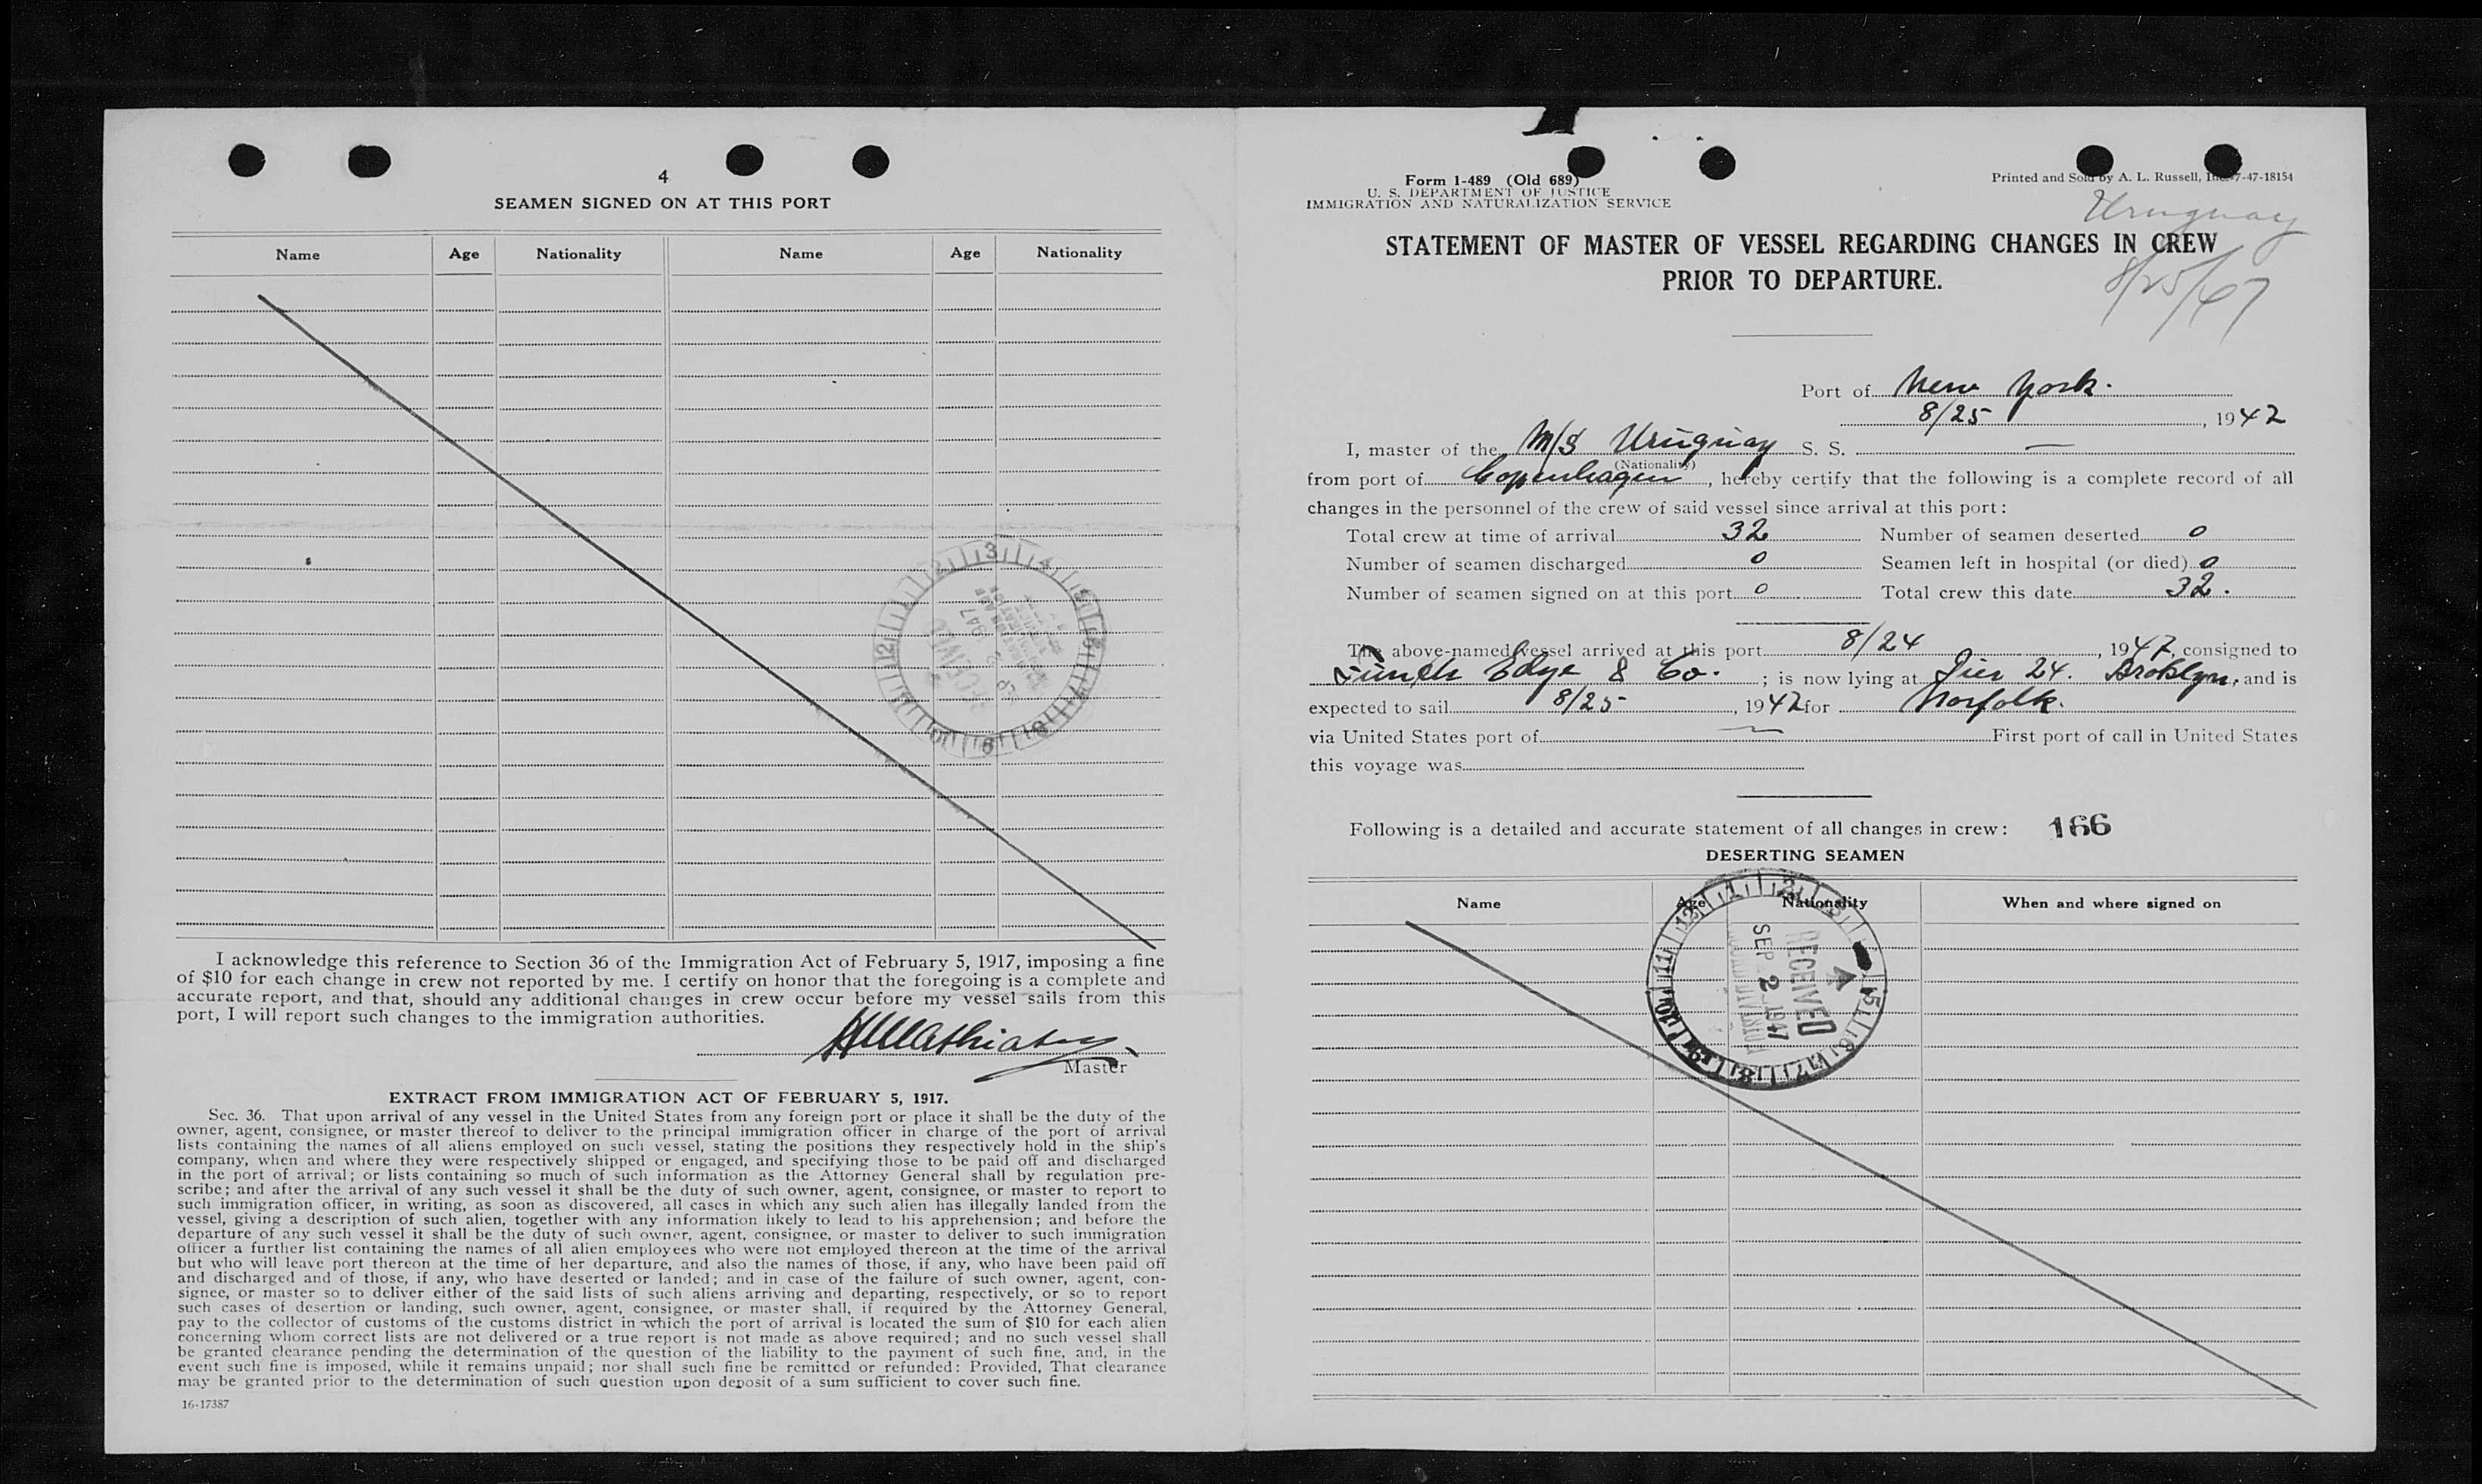 4
SEAMEN SIGNED ON AT THIS PORT
Name Age Nationality Name Age Nationality
I acknowledge this reference to Section 36 of the Immigration Act of February 5, 1917, imposing a fine
of $10 for each change in crew not reported by me. I certify on honor that the foregoing is a complete and
accurate report, and that, should any additional changes in crew occur before my vessel sails from this
port, I will report such changes to the immigration authorities.
Master
EXTRACT FROM IMMIGRATION ACT OF FEBRUARY 5, 1917.
Sec. 36. That upon arrival of any vessel in the United States from any foreign port or place it shall be the duty of the
owner, agent, consignee, or master thereof to deliver to the principal immigration officer in charge of the port of arrival
lists containing the names of all aliens employed on such vessel, stating the positions they respectively hold in the ship's
company, when and where they were respectively shipped or engaged, and specifying those to be paid off and discharged
in the port of arrival; or lists containing so much of such information as the Attorney General shall by regulation pre-
scribe; and after the arrival of any such vessel it shall be the duty of such owner, agent, consignee, or master to report to
such immigration officer, in writing, as soon as discovered, all cases in which any such alien has illegally landed from the
vessel, giving a description of such alien, together with any information likely to lead to his apprehension; and before the
departure of any such vessel it shall be the duty of such owner, agent, consignee, or master to deliver to such immigration
officer a further list containing the names of all alien employees who were not employed thereon at the time of the arrival
but who will leave port thereon at the time of her departure, and also the names of those, if any, who have been paid off
and discharged and of those, if any, who have deserted or landed; and in case of the failure of such owner, agent, con-
signee, or master so to deliver either of the said lists of such aliens arriving and departing, respectively, or so to report
such cases of desertion or landing, such owner, agent, consignee, or master shall, if required by the Attorney General,
pay to the collector of customs of the customs district in which the port of arrival is located the sum of $10 for each alien
concerning whom correct lists are not delivered or a true report is not made as above required; and no such vessel shall
be granted clearance pending the determination of the question of the liability to the payment of such fine, and, in the
event such fine is imposed, while it remains unpaid; nor shall such fine be remitted or refunded: Provided, That clearance
may be granted prior to the determination of such question upon deposit of a sum sufficient to cover such fine.
16-17387
Form 1-489 (Old 689)
U. S. DEPARTMENT OF JUSTICE
IMMIGRATION AND NATURALIZATION SERVICE
Printed and Sold by A. L. Russell, Inc. 7-47-18154
Uruguay
STATEMENT OF MASTER OF VESSEL REGARDING CHANGES IN CREW
PRIOR TO DEPARTURE.
8/25/47
Port of New York.
8/25, 1947
I, master of the M/S Uruguay S. S. —
(Nationality)
from port of Copenhagen, hereby certify that the following is a complete record of all
changes in the personnel of the crew of said vessel since arrival at this port:
Total crew at time of arrival 32 Number of seamen deserted 0
Number of seamen discharged 0 Seamen left in hospital (or died) 0
Number of seamen signed on at this port 0 Total crew this date 32.
The above-named vessel arrived at this port 8/24, 1947, consigned to
Funch Edye & Co. ; is now lying at Pier 24. Broklyn, and is
expected to sail 8/25, 1947 for Norfolk.
via United States port of — First port of call in United States
this voyage was
Following is a detailed and accurate statement of all changes in crew: 166
DESERTING SEAMEN
Name Age Nationality When and where signed on
RECEIVED
SEP 2 1947